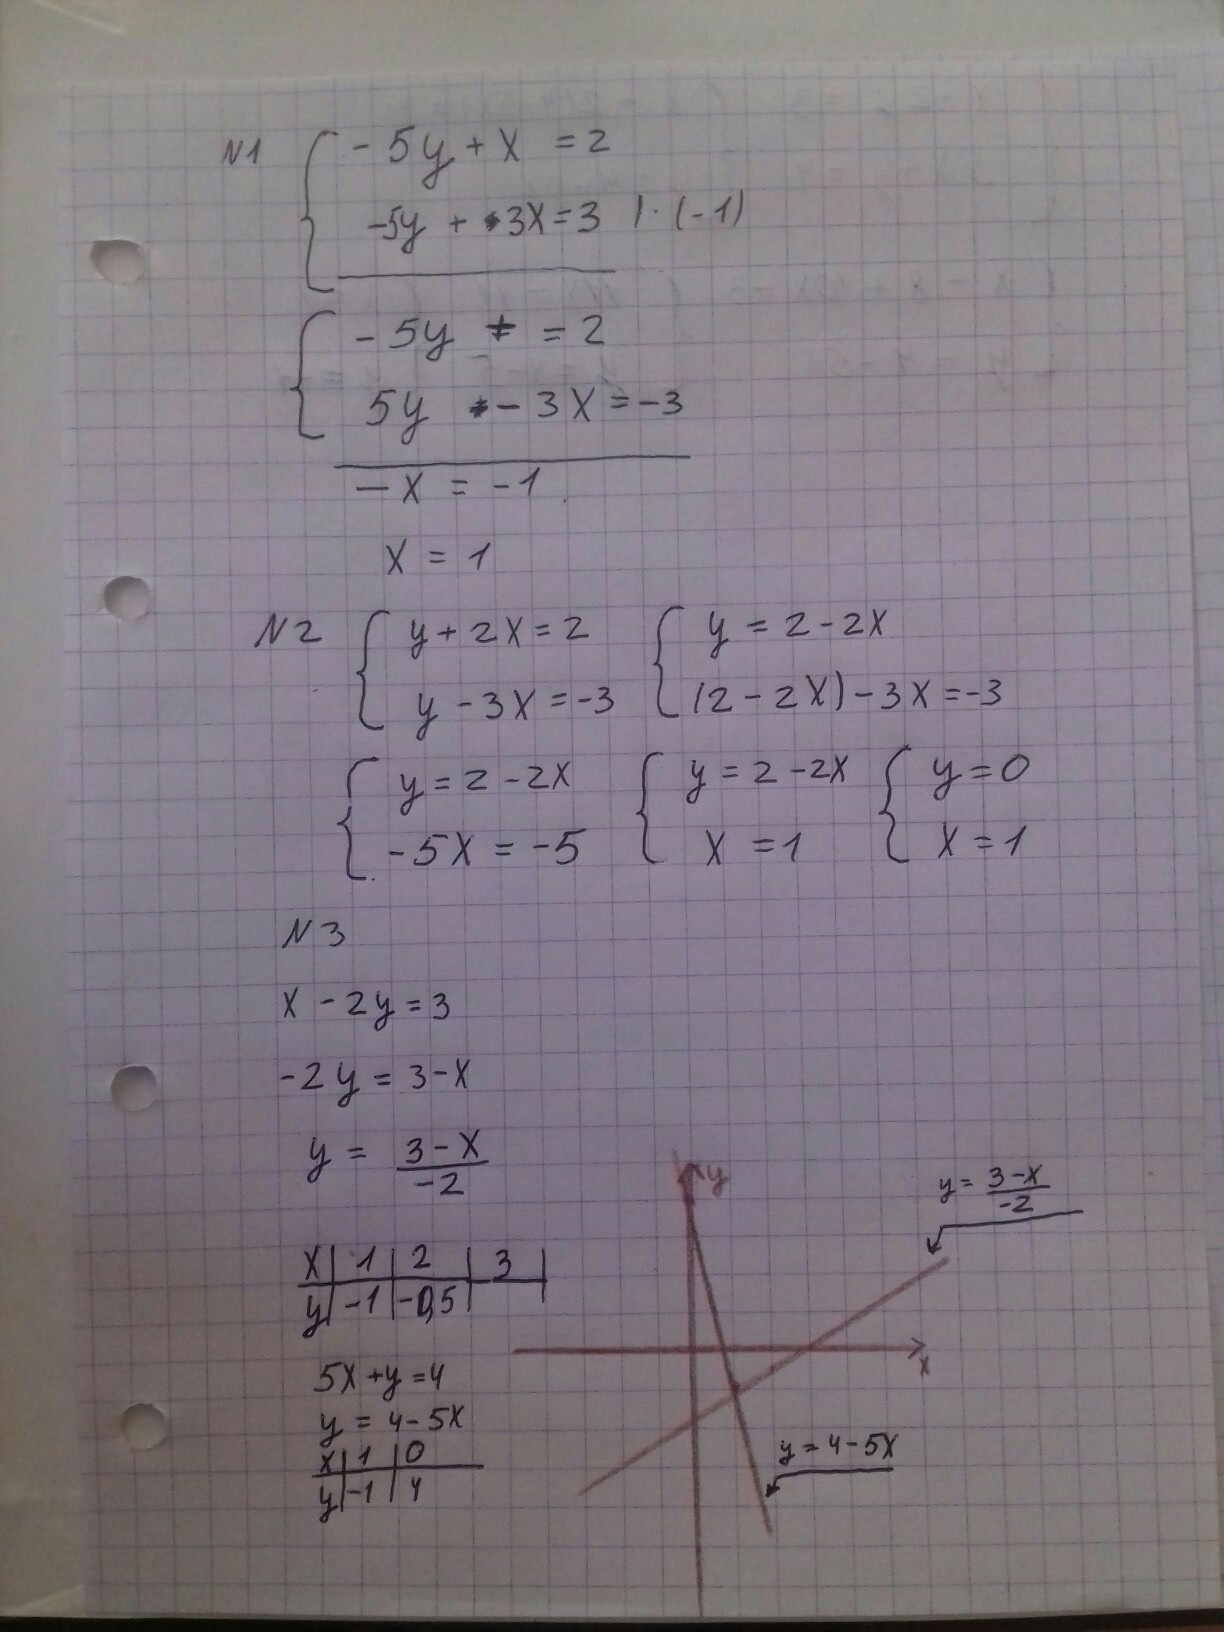 N1 { -5y + x = 2
-5y + 3x = 3 | · (-1)
{ -5y + = 2
5y - 3x = -3
-x = -1
x = 1
N2 { y + 2x = 2 { y = 2 - 2x
y - 3x = -3 (2 - 2x) - 3x = -3
{ y = 2 - 2x { y = 2 - 2x { y = 0
-5x = -5 x = 1 x = 1
N3
x - 2y = 3
-2y = 3 - x
y = (3 - x)/-2
x | 1 | 2 | 3 |
y | -1 | -0,5 |
5x + y = 4
y = 4 - 5x
x | 1 | 0
y | -1 | 4
y
y = (3 - x)/-2
x
y = 4 - 5x